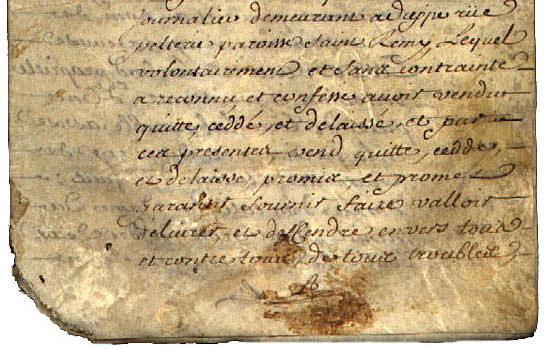 Journalier demeurant a dieppe rüe
pelterie paroisse Saint Remy, Lequel
volontairement et sans contrainte
a reconnu et confesse avoir vendu
quitté, ceddé, et delaissé, et par
ces presentes vend quitte, cedde,
et delaisse, promis et promet
garantir fournir faire valloir
delivrer, et deffendre envers tous
et contre tous, de tous troubles,